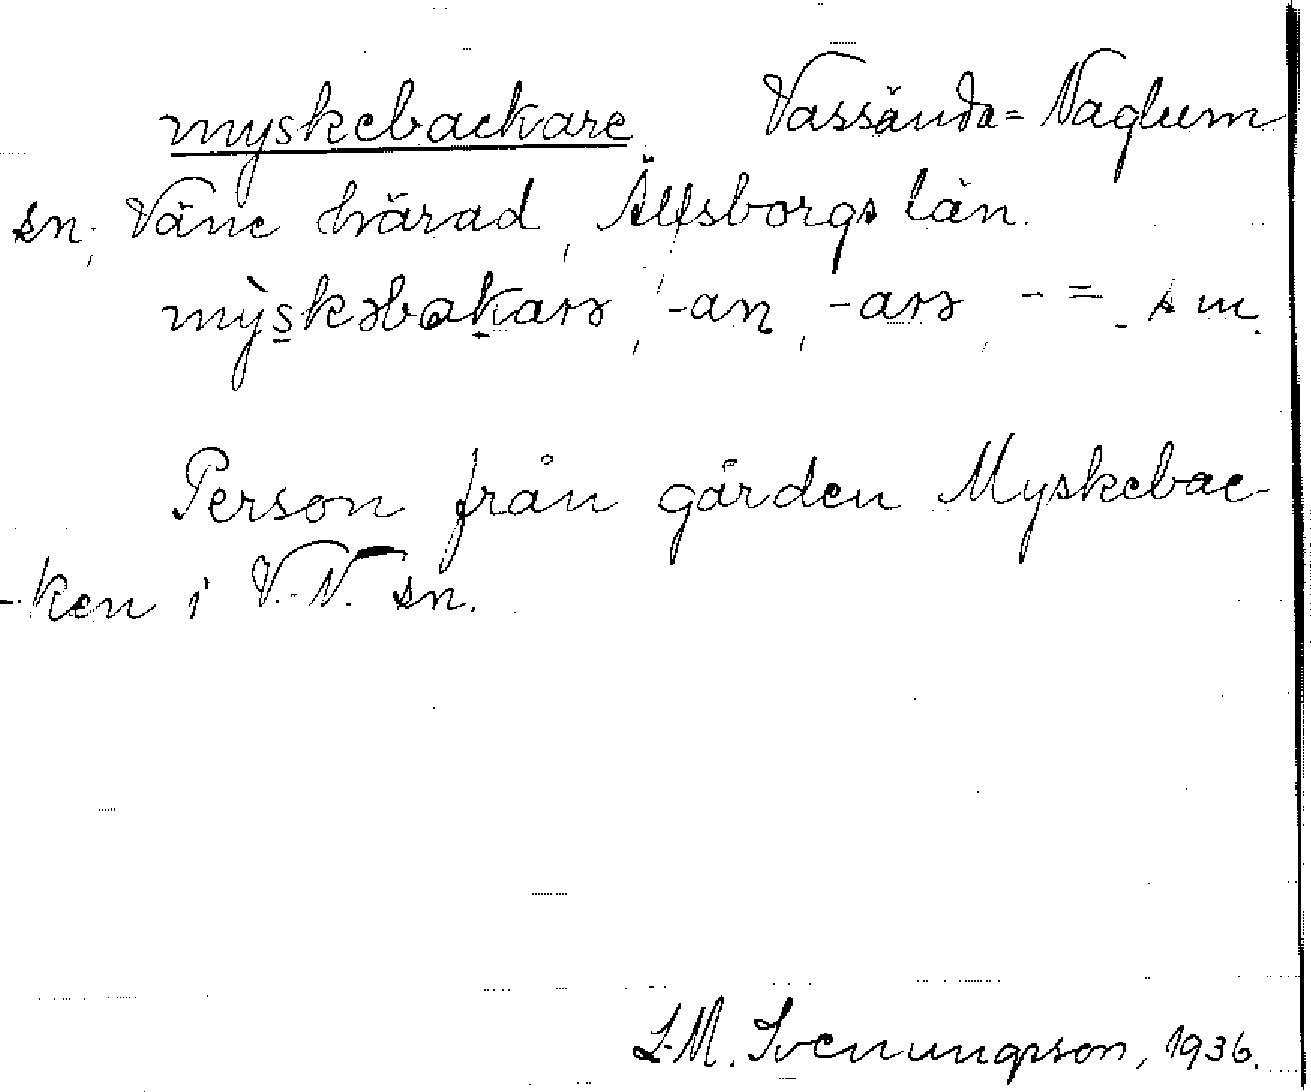 myskebackare Vassända=Naglum
sn, Väne härad, Älfsborgs län.
mỳskəbakarə, -an, -arə, -=. s m.
Person från gården Myskebac-
-ken i V.-N. sn.
L-M. Svenungsson, 1936.